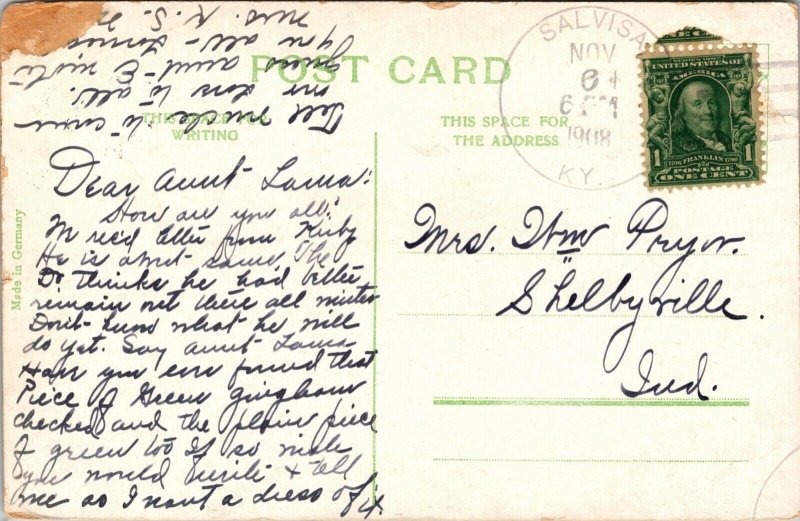 POST CARD
THIS SPACE FOR
WRITING
THIS SPACE FOR
THE ADDRESS
Made in Germany
SALVISA
NOV
6
6 PM
1908
KY.
UNITED STATES OF
AMERICA
1 1
1706 FRANKLIN 1790
POSTAGE
ONE CENT
Mrs. Wm Pryor.
Shelbyville.
Ind.
Dear Aunt Laura:
How are you all?
We rec'd letter from Ruby
He is about same The
Dr thinks he had better
remain out there all winter
Don't know what he will
do yet. Say Aunt Laura
Have you ever found that
Piece of Green gingham
checked and the plain piece
of green too If so wish
you would write & tell
me as I want a dress of it.
Tell Uncle to come
down to all.
you all
Mrs. R. S.